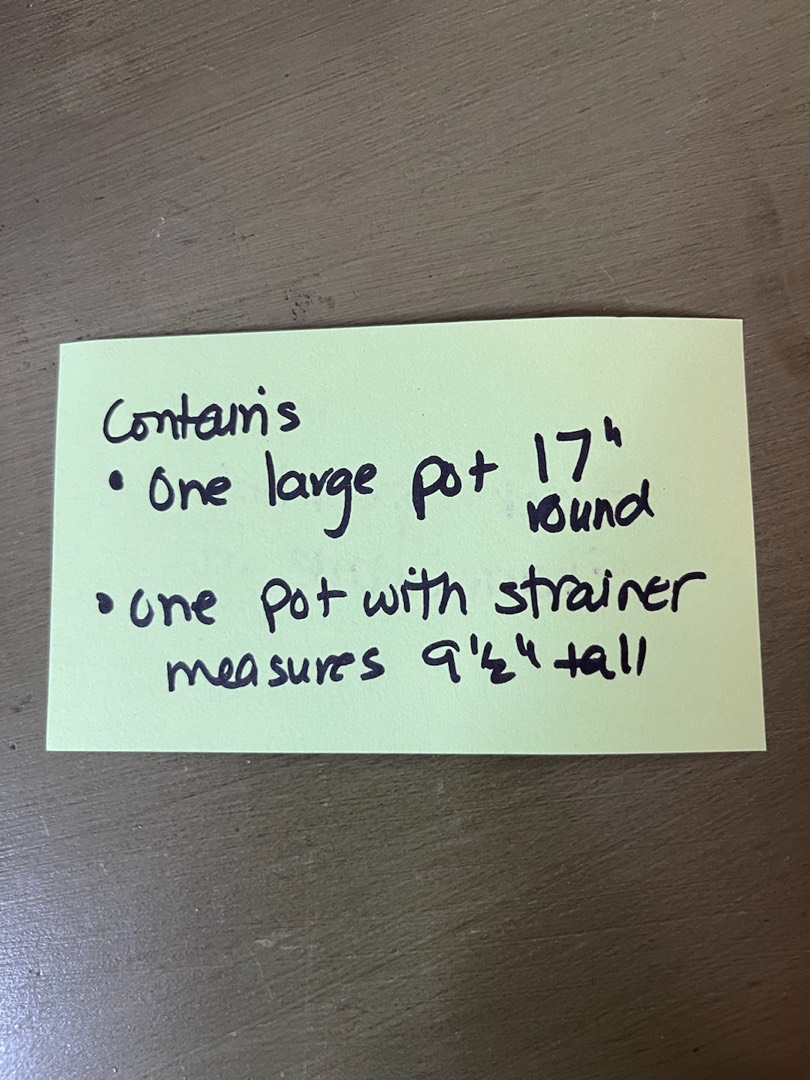 Contains
• One large pot 17"
round
• one pot with strainer
measures 9 1/2" tall